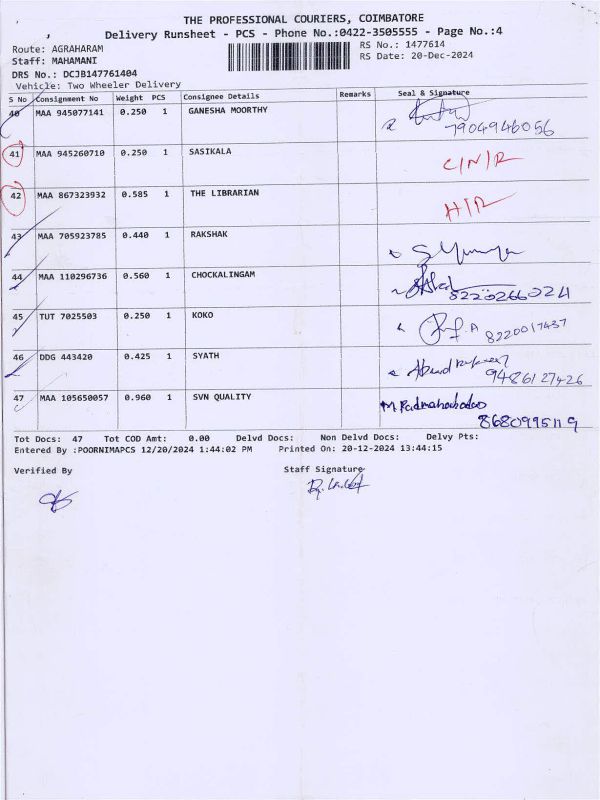 THE PROFESSIONAL COURIERS, COIMBATORE
Delivery Runsheet - PCS - Phone No.:0422-3505555 - Page No.:4
Route: AGRAHARAM RS No.: 1477614
Staff: MAHAMANI RS Date: 20-Dec-2024
DRS No.: DCJB147761404
Vehicle: Two Wheeler Delivery
S No Consignment No Weight PCS Consignee Details Remarks Seal & Signature
40 MAA 945077141 0.250 1 GANESHA MOORTHY
7904946056
41 MAA 945260710 0.250 1 SASIKALA C/N/R
42 MAA 867323932 0.585 1 THE LIBRARIAN H/R
43 MAA 705923785 0.440 1 RAKSHAK
44 MAA 110296736 0.560 1 CHOCKALINGAM
45 TUT 7025503 0.250 1 KOKO
8220017437
46 DDG 443420 0.425 1 SYATH
9486127426
47 MAA 105650057 0.960 1 SVN QUALITY
Tot Docs: 47 Tot COD Amt: 0.00 Delvd Docs: Non Delvd Docs: Delvy Pts:
Entered By :POORNIMAPCS 12/20/2024 1:44:02 PM Printed On: 20-12-2024 13:44:15
Verified By Staff Signature